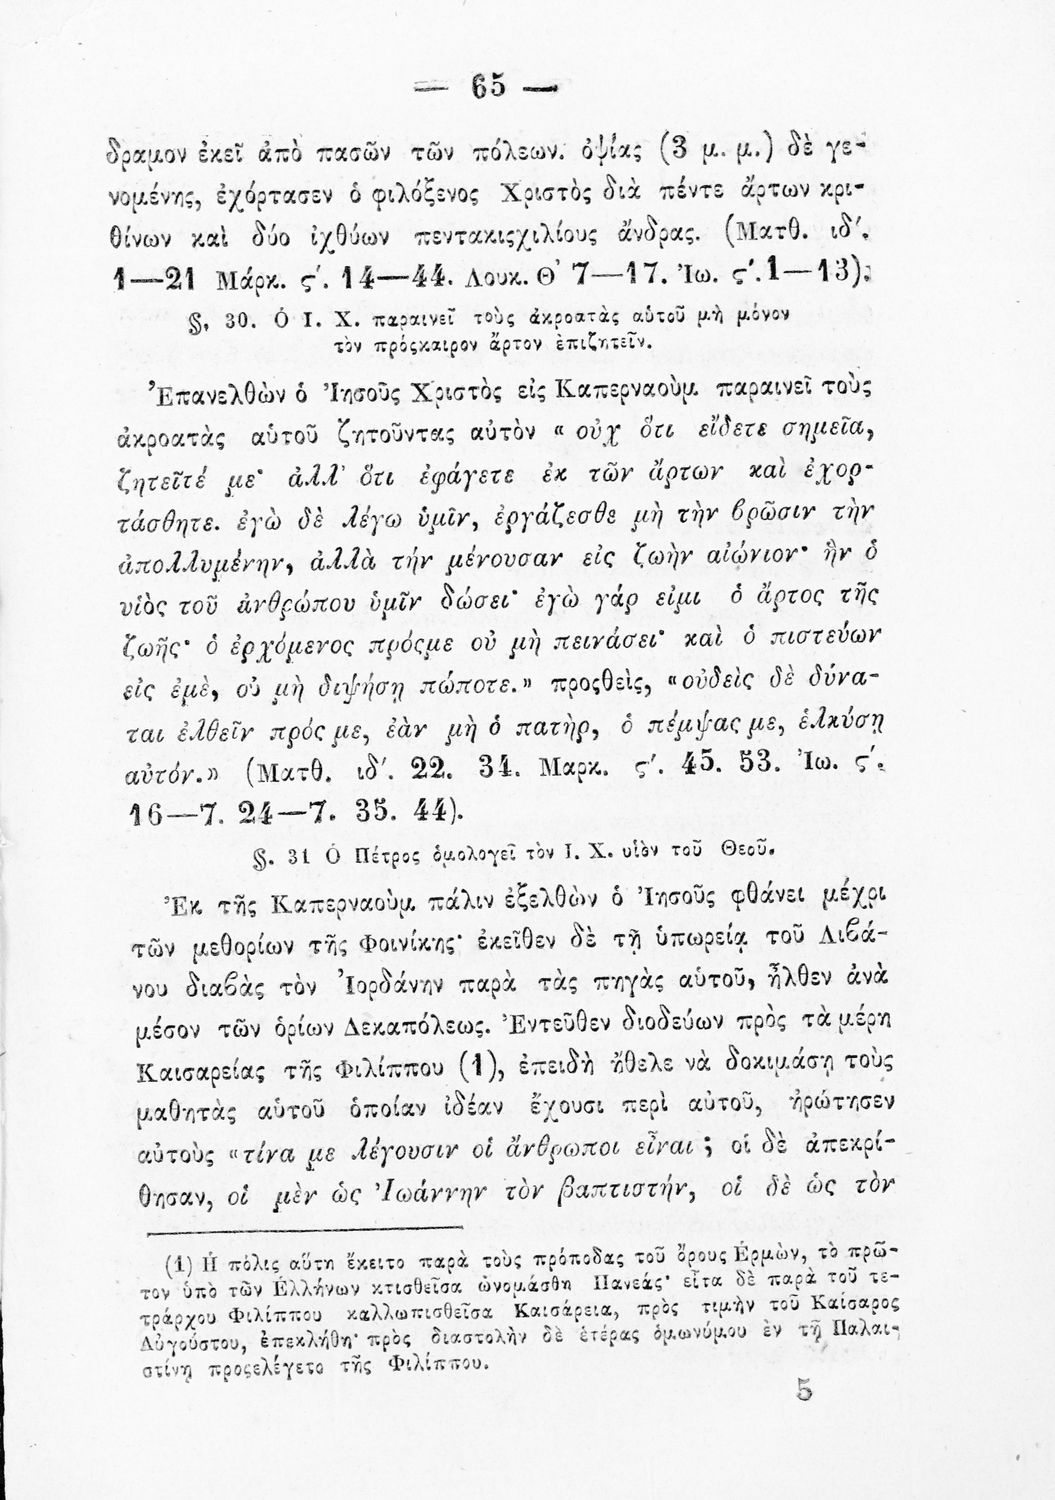 — 65 —
δραμον ἐκεῖ ἀπὸ πασῶν τῶν πόλεων. ὀψίας (3 μ. μ.) δὲ γε-
νομένης, ἐχόρτασεν ὁ φιλόξενος Χριστὸς διὰ πέντε ἄρτων κρι-
θίνων καὶ δύο ἰχθύων πεντακιςχιλίους ἄνδρας. (Ματθ. ιδ΄.
1—21 Μάρκ. ϛ΄. 14—44. Λουκ. Θ΄ 7—17. Ἰω. ϛ΄. 1—13).
§. 30. Ὁ Ι. Χ. παραινεῖ τοὺς ἀκροατὰς αὑτοῦ μὴ μόνον
τὸν πρόςκαιρον ἄρτον ἐπιζητεῖν.
Ἐπανελθὼν ὁ Ἰησοῦς Χριστὸς εἰς Καπερναοὺμ παραινεῖ τοὺς
ἀκροατὰς αὑτοῦ ζητοῦντας αὐτὸν « οὐχ ὅτι εἴδετε σημεῖα,
ζητεῖτέ με· ἀλλ' ὅτι ἐφάγετε ἐκ τῶν ἄρτων καὶ ἐχορ-
τάσθητε. ἐγὼ δὲ λέγω ὑμῖν, ἐργάζεσθε μὴ τὴν βρῶσιν τὴν
ἀπολλυμένην, ἀλλὰ τήν μένουσαν εἰς ζωὴν αἰώνιον· ἣν ὁ
υἱὸς τοῦ ἀνθρώπου ὑμῖν δώσει· ἐγὼ γάρ εἰμι ὁ ἄρτος τῆς
ζωῆς· ὁ ἐρχόμενος πρόςμε οὐ μὴ πεινάσει· καὶ ὁ πιστεύων
εἰς ἐμὲ, οὐ μὴ διψήσῃ πώποτε.» προςθεὶς, «οὐδεὶς δὲ δύνα-
ται ἐλθεῖν πρός με, ἐὰν μὴ ὁ πατὴρ, ὁ πέμψας με, ἑλκύσῃ
αὐτόν.» (Ματθ. ιδ΄. 22. 34. Μαρκ. ϛ΄. 45. 53. Ἰω. ϛ΄.
16—7. 24—7. 35. 44).
§. 31 Ὁ Πέτρος ὁμολογεῖ τὸν Ι. Χ. υἱὸν τοῦ Θεοῦ.
Ἐκ τῆς Καπερναοὺμ πάλιν ἐξελθὼν ὁ Ἰησοῦς φθάνει μέχρι
τῶν μεθορίων τῆς Φοινίκης· ἐκεῖθεν δὲ τῇ ὑπωρείᾳ τοῦ Λιβά-
νου διαβὰς τὸν Ἰορδάνην παρὰ τὰς πηγὰς αὑτοῦ, ἦλθεν ἀνὰ
μέσον τῶν ὁρίων Δεκαπόλεως. Ἐντεῦθεν διοδεύων πρὸς τὰ μέρη
Καισαρείας τῆς Φιλίππου (1), ἐπειδὴ ἤθελε νὰ δοκιμάσῃ τοὺς
μαθητὰς αὑτοῦ ὁποίαν ἰδέαν ἔχουσι περὶ αὐτοῦ, ἠρώτησεν
αὐτοὺς «τίνα με λέγουσιν οἱ ἄνθρωποι εἶναι ; οἱ δὲ ἀπεκρί-
θησαν, οἱ μὲν ὡς Ἰωάννην τὸν βαπτιστήν, οἱ δὲ ὡς τὸν
(1) Ἡ πόλις αὕτη ἔκειτο παρὰ τοὺς πρόποδας τοῦ ὄρους Ἑρμὼν, τὸ πρῶ-
τον ὑπὸ τῶν Ἑλλήνων κτισθεῖσα ὠνομάσθη Πανεάς· εἶτα δὲ παρὰ τοῦ τε-
τράρχου Φιλίππου καλλωπισθεῖσα Καισάρεια, πρὸς τιμὴν τοῦ Καίσαρος
Αὐγούστου, ἐπεκλήθη· πρὸς διαστολὴν δὲ ἑτέρας ὁμωνύμου ἐν τῇ Παλαι-
στίνῃ προςελέγετο τῆς Φιλίππου.
5